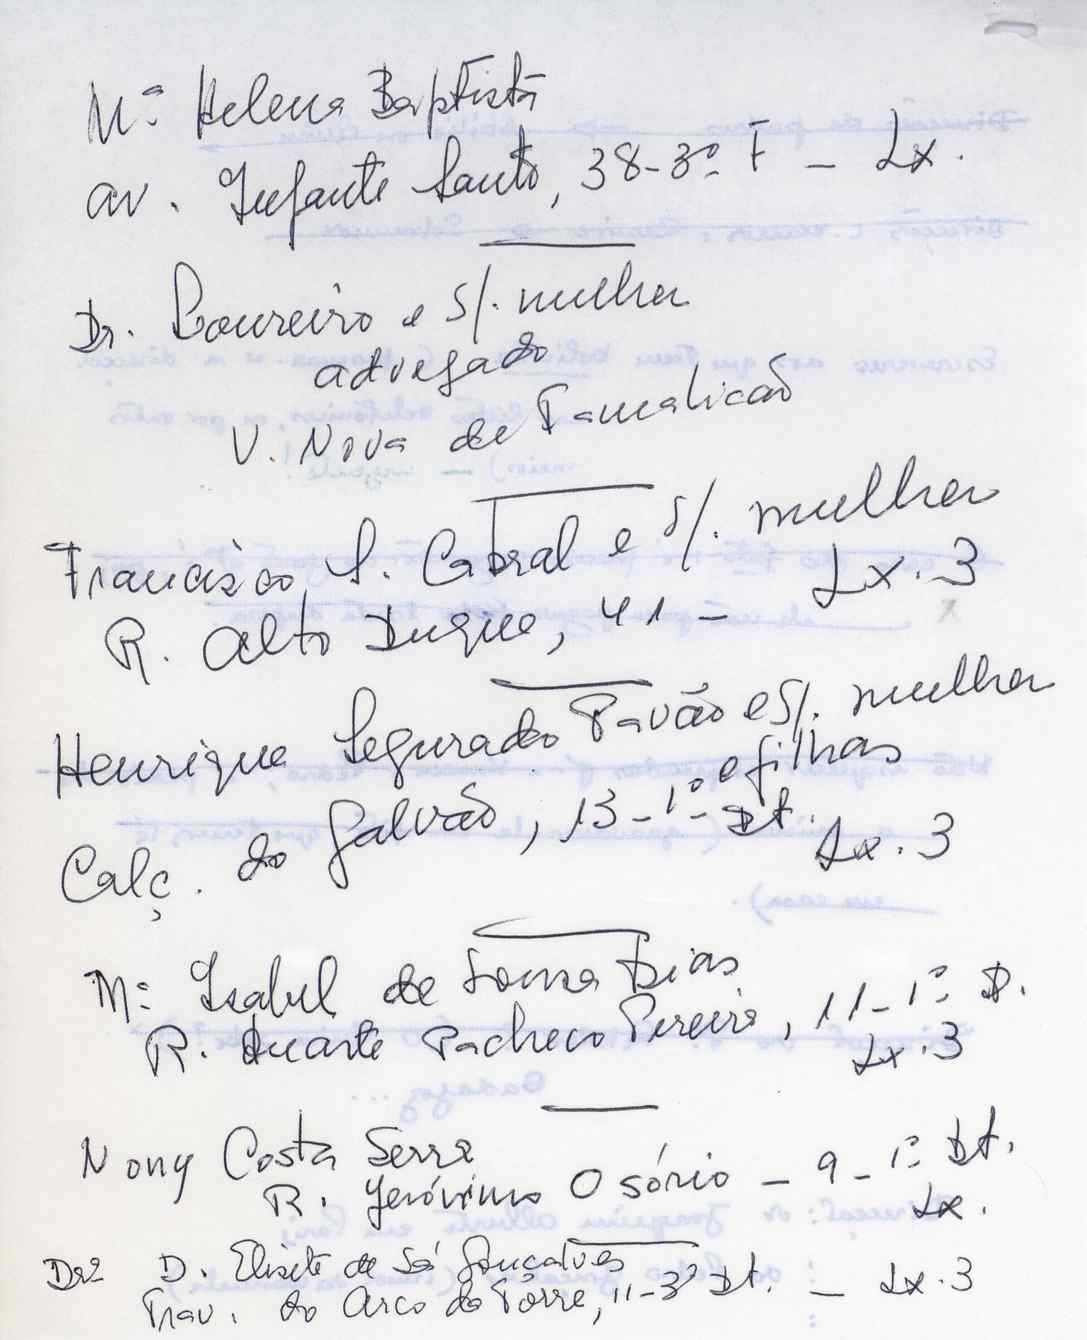 Mª Helena Baptista
Av. Infante Santo, 38-3º F - Lx.
Dr. Loureiro e s/. mulher
advogado
V. Nova de Famalicão
Francisco S. Cabral e s/. mulher
R. Alto Duque, 41 - Lx. 3
Henrique Segurado Pavão e s/. mulher
e filhas
Calç. do Galvão, 13-1º Dt.
Lx. 3
Mª Isabel de Sousa Dias
R. Duarte Pacheco Pereira, 11-1º D.
Lx. 3
Nony Costa Serra
R. Jerónimo Osório - 9-1º Dt.
Lx.
Drª D. Elisete de Sá Gonçalves
Trav. do Arco da Torre, 11-3º Dt. - Lx. 3